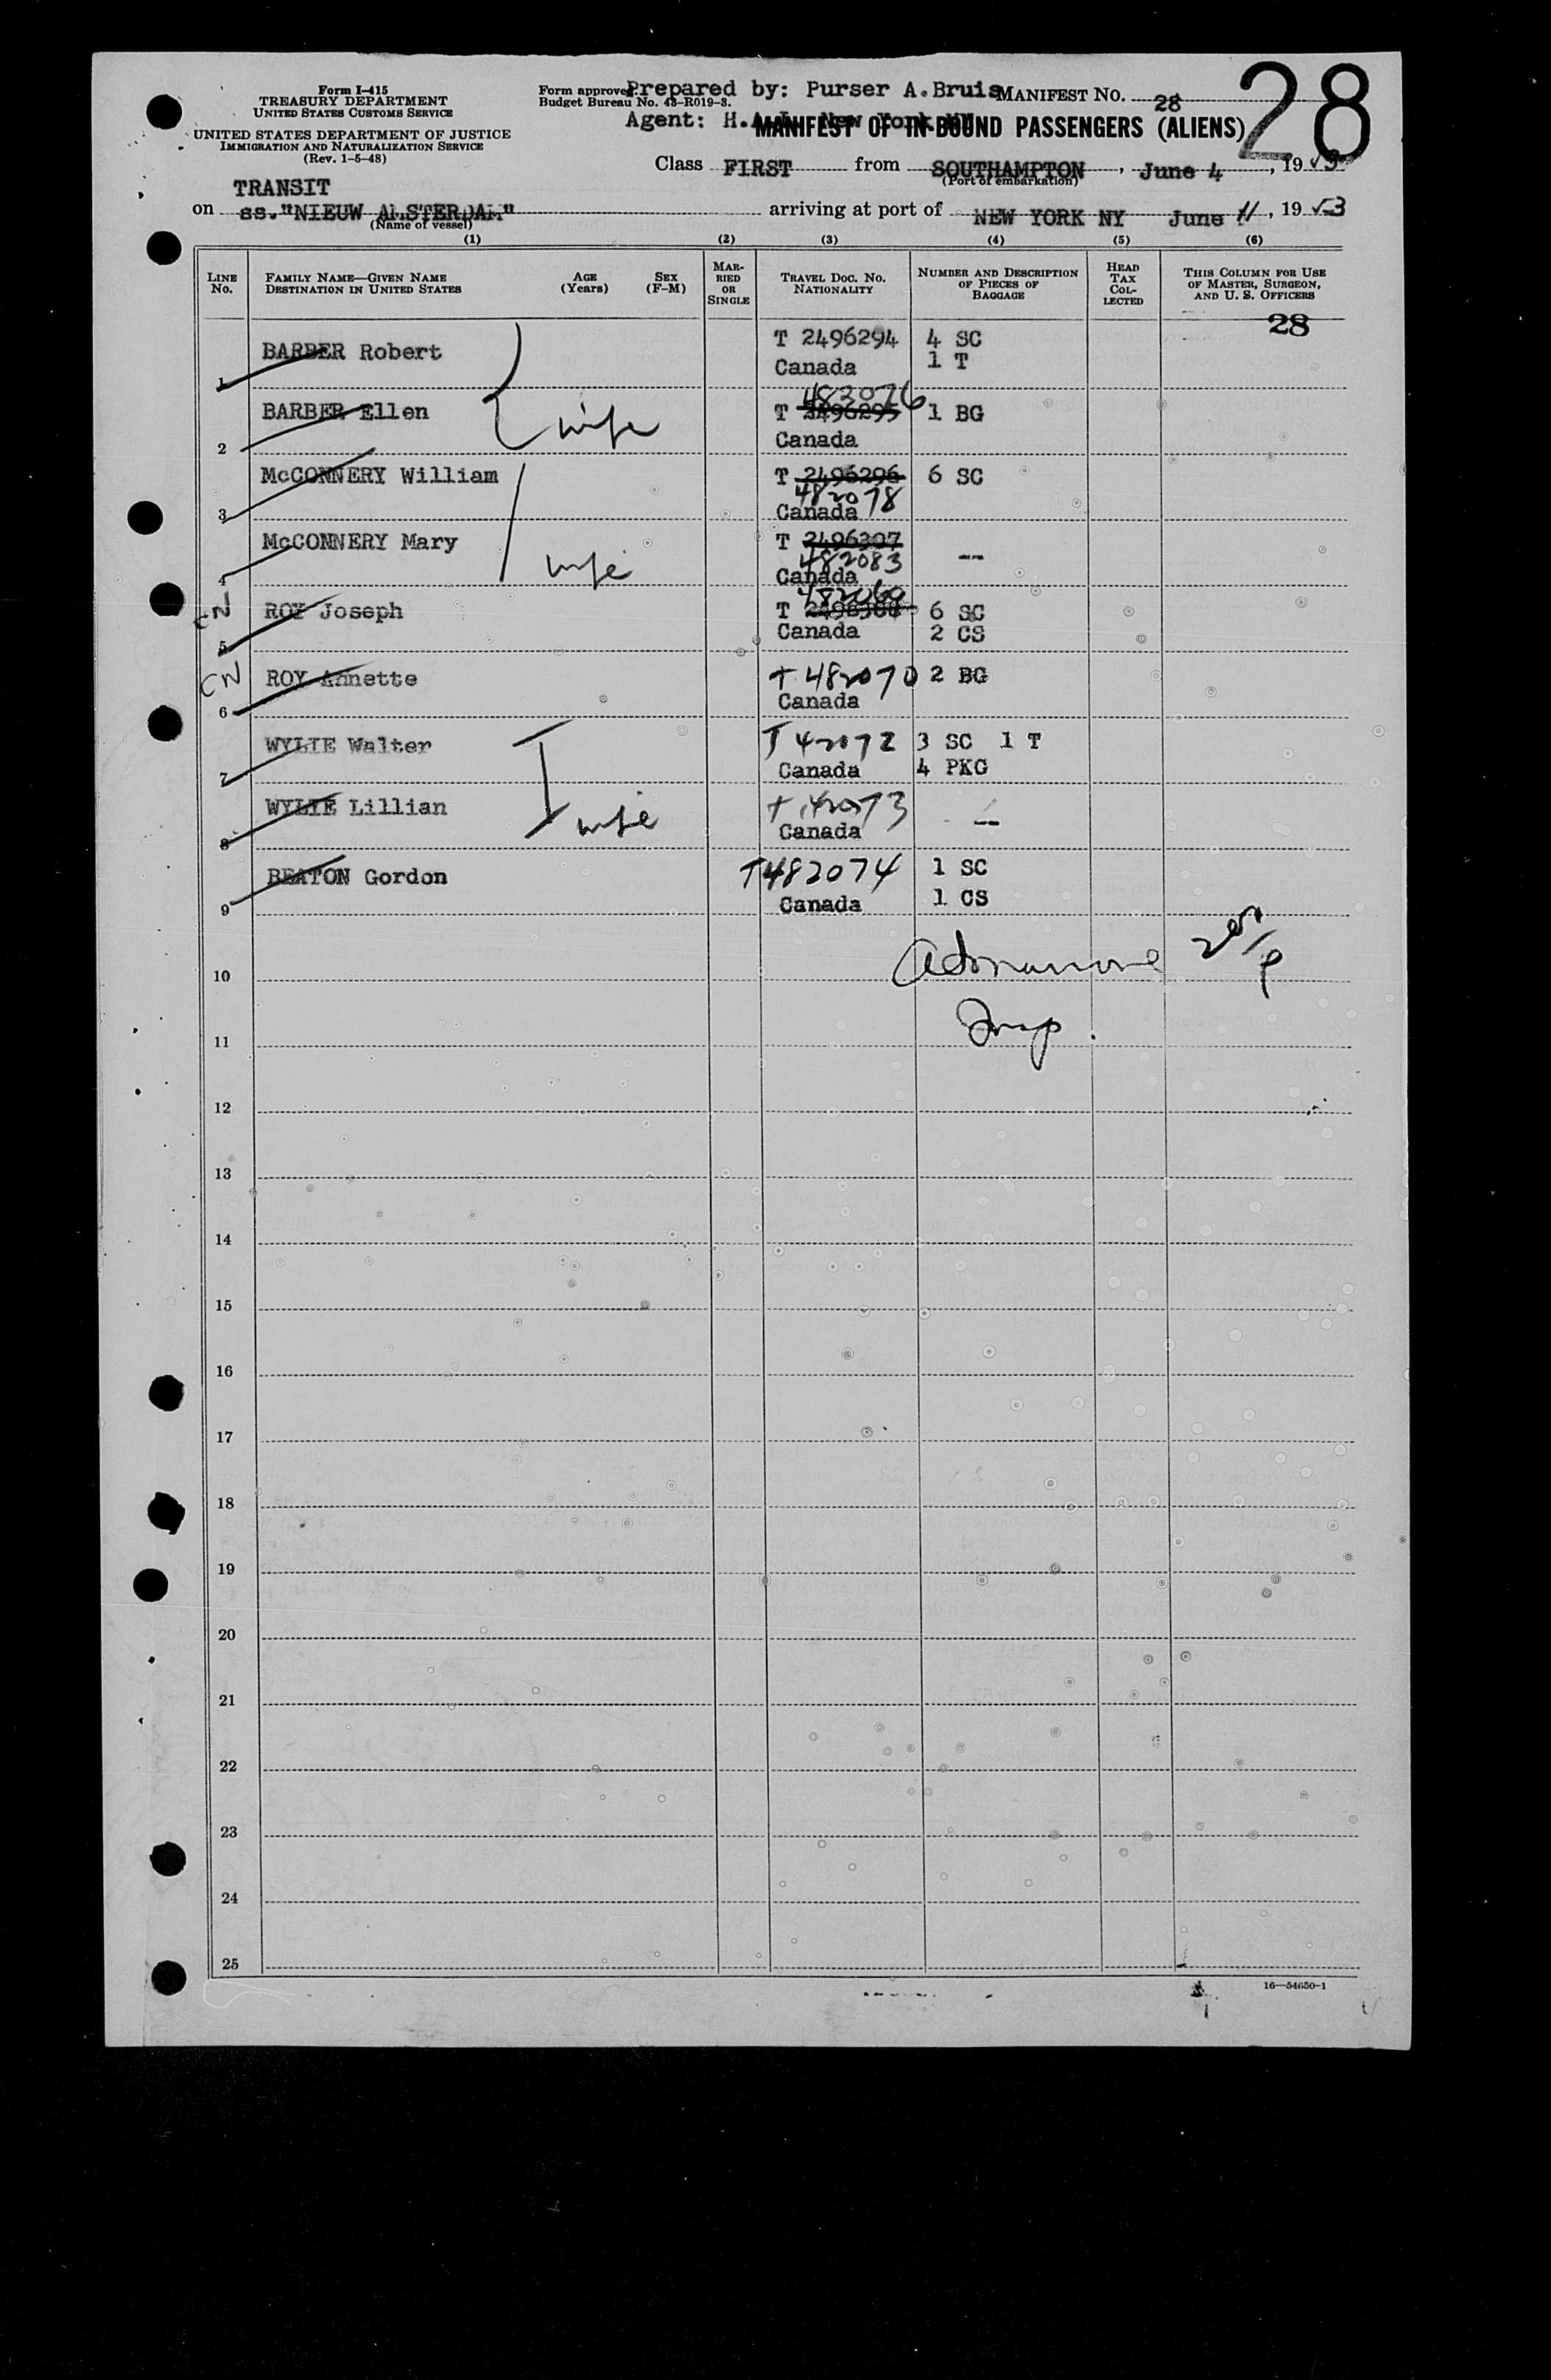 Form I-415
TREASURY DEPARTMENT
UNITED STATES CUSTOMS SERVICE
UNITED STATES DEPARTMENT OF JUSTICE
IMMIGRATION AND NATURALIZATION SERVICE
(Rev. 1-5-48)
Form approved.
Budget Bureau No. 43-R019-3.
Prepared by: Purser A.Bruis
Agent: H.A.L. New York NY
MANIFEST NO. 28
28
MANIFEST OF IN-BOUND PASSENGERS (ALIENS)
Class FIRST from SOUTHAMPTON, June 4, 1953
(Port of embarkation)
TRANSIT
on ss."NIEUW AMSTERDAM" arriving at port of NEW YORK NY June 11, 1953
(Name of vessel)
(1) (2) (3) (4) (5) (6)
LINE NO. FAMILY NAME—GIVEN NAME DESTINATION IN UNITED STATES AGE (Years) SEX (F-M) MARRIED OR SINGLE TRAVEL DOC. NO. NATIONALITY NUMBER AND DESCRIPTION OF PIECES OF BAGGAGE HEAD TAX COLLECTED THIS COLUMN FOR USE OF MASTER, SURGEON, AND U. S. OFFICERS
28
1 BARBER Robert T 2496294 4 SC
Canada 1 T
483076
2 BARBER Ellen wife T 2496295 1 BG
Canada
3 McCONNERY William T 2496296 6 SC
482078
Canada
4 McCONNERY Mary wife T 2496307 --
482083
Canada
482069
CN 5 ROY Joseph T 6 SC
Canada 2 CS
CN 6 ROY Annette T 482070 2 BG
Canada
7 WYLIE Walter T 42072 3 SC 1 T
Canada 4 PKG
8 WYLIE Lillian wife T 42073 --
Canada
9 BEATON Gordon T482074 1 SC
Canada 1 CS
10
Insp.
11
12
13
14
15
16
17
18
19
20
21
22
23
24
25
16—54650-1